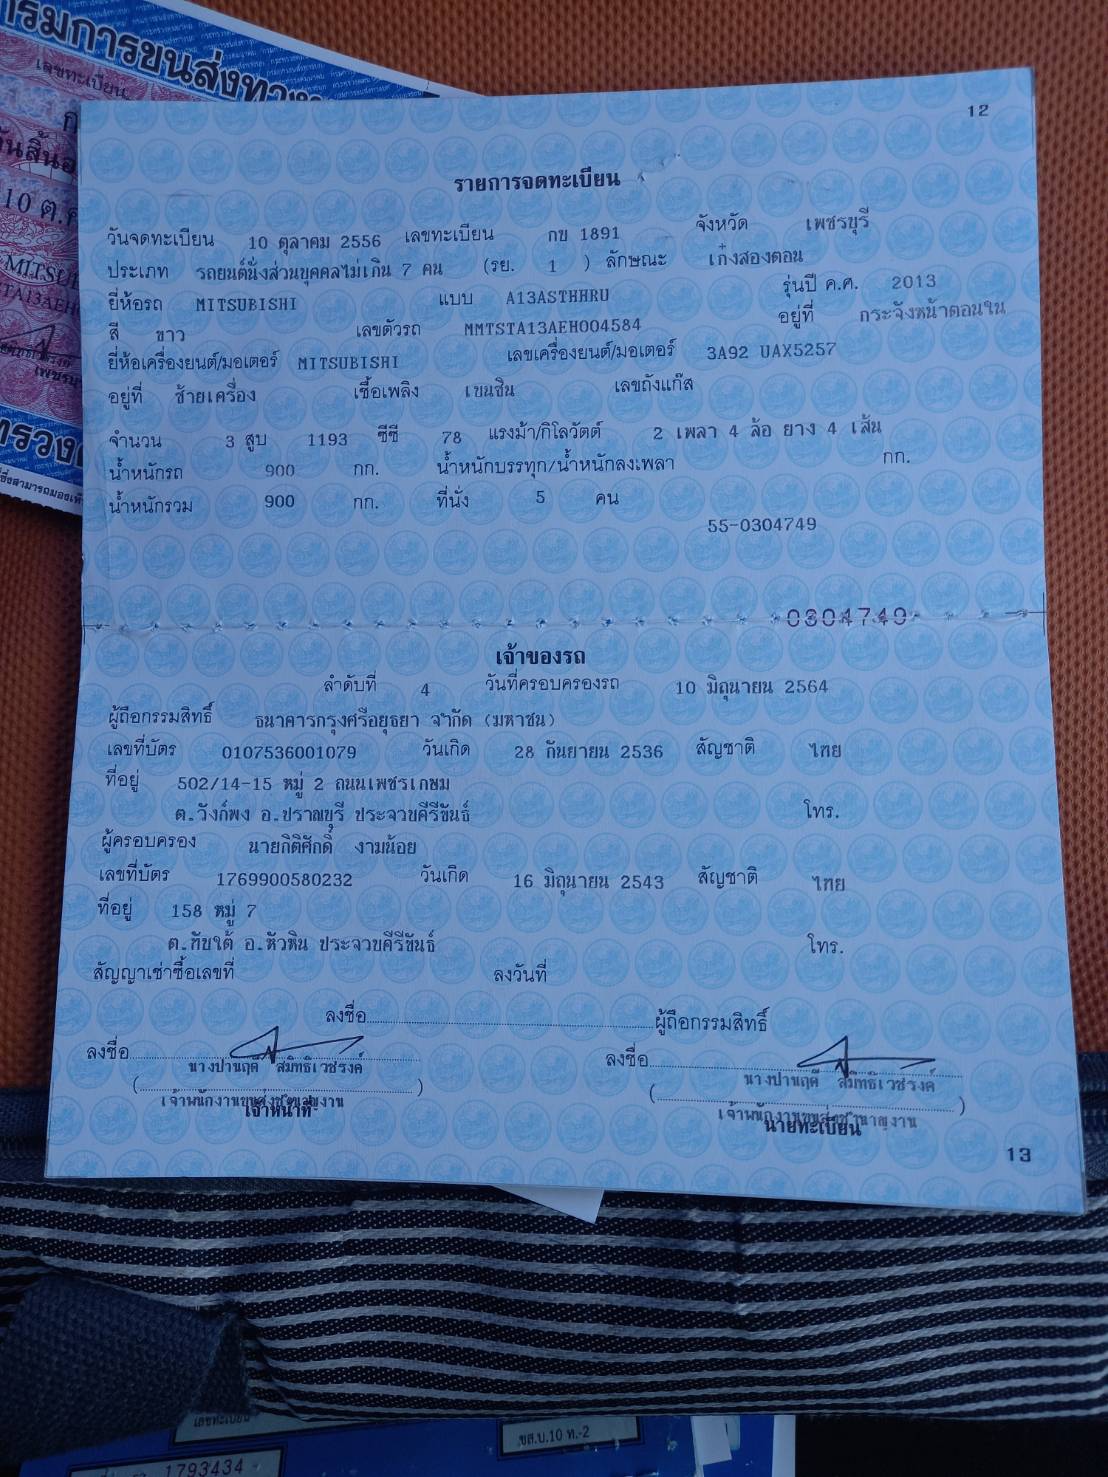 กรมการขนส่งทาง
เลขทะเบียน
10 ต.ค
12
รายการจดทะเบียน
วันจดทะเบียน 10 ตุลาคม 2556 เลขทะเบียน กข 1891 จังหวัด เพชรบุรี
ประเภท รถยนต์นั่งส่วนบุคคลไม่เกิน 7 คน (รย. 1 ) ลักษณะ เก๋งสองตอน
ยี่ห้อรถ MITSUBISHI แบบ A13ASTHHRU รุ่นปี ค.ศ. 2013
สี ขาว เลขตัวรถ MMTSTA13AEH004584 อยู่ที่ กระจังหน้าตอนใน
ยี่ห้อเครื่องยนต์/มอเตอร์ MITSUBISHI เลขเครื่องยนต์/มอเตอร์ 3A92 UAX5257
อยู่ที่ ซ้ายเครื่อง เชื้อเพลิง เบนซิน เลขถังแก๊ส
จำนวน 3 สูบ 1193 ซีซี 78 แรงม้า/กิโลวัตต์ 2 เพลา 4 ล้อ ยาง 4 เส้น
น้ำหนักรถ 900 กก. น้ำหนักบรรทุก/น้ำหนักลงเพลา กก.
น้ำหนักรวม 900 กก. ที่นั่ง 5 คน
55-0304749
0304749
เจ้าของรถ
ลำดับที่ 4 วันที่ครอบครองรถ 10 มิถุนายน 2564
ผู้ถือกรรมสิทธิ์ ธนาคารกรุงศรีอยุธยา จำกัด (มหาชน)
เลขที่บัตร 0107536001079 วันเกิด 28 กันยายน 2536 สัญชาติ ไทย
ที่อยู่ 502/14-15 หมู่ 2 ถนนเพชรเกษม
ต.วังก์พง อ.ปราณบุรี ประจวบคีรีขันธ์ โทร.
ผู้ครอบครอง นายกิติศักดิ์ งามน้อย
เลขที่บัตร 1769900580232 วันเกิด 16 มิถุนายน 2543 สัญชาติ ไทย
ที่อยู่ 158 หมู่ 7
ต.ทับใต้ อ.หัวหิน ประจวบคีรีขันธ์ โทร.
สัญญาเช่าซื้อเลขที่ ลงวันที่
ลงชื่อ ผู้ถือกรรมสิทธิ์
ลงชื่อ ลงชื่อ
นางปานฤดี สมิทธิเวชรงค์ นางปานฤดี สมิทธิเวชรงค์
( ) ( )
เจ้าพนักงานขนส่งชำนาญงาน เจ้าพนักงานขนส่งชำนาญงาน
เจ้าหน้าที่ นายทะเบียน
13
เลขทะเบียน
ขส.บ.10 ท.-2
1793434